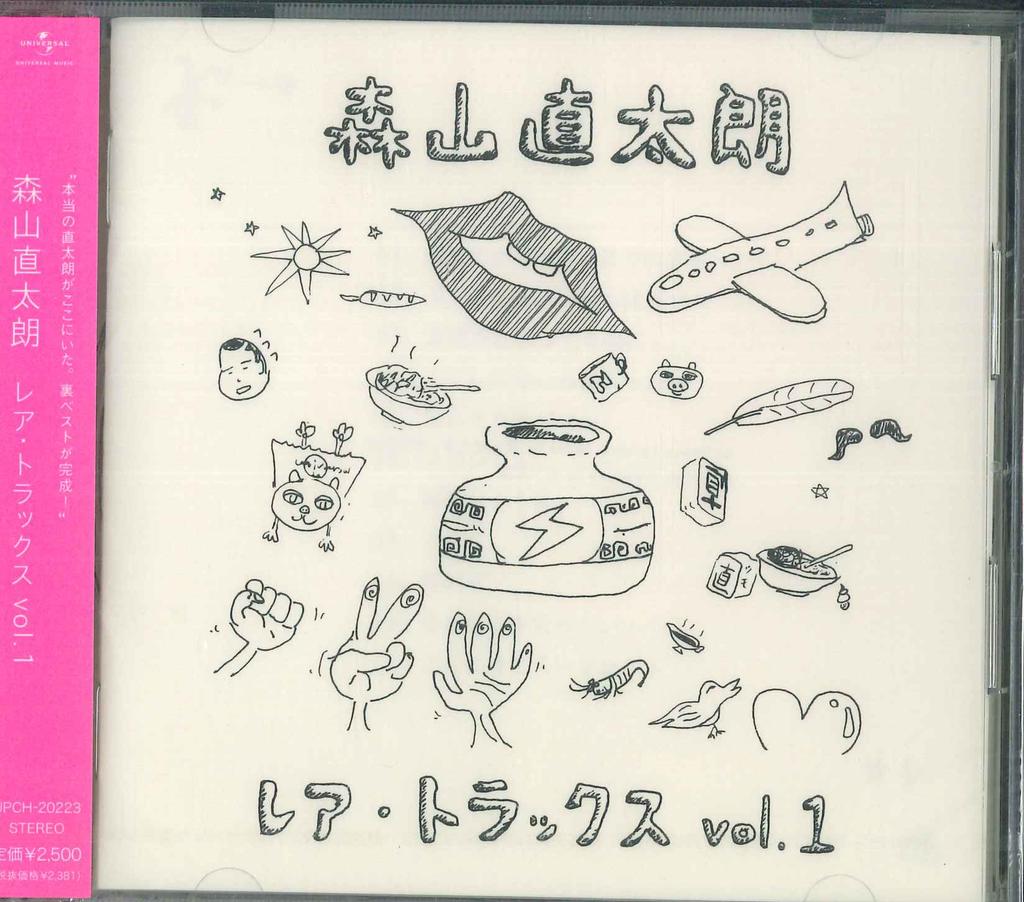 UNIVERSAL
UNIVERSAL MUSIC
"本当の直太朗がここにいた。裏ベストが完成!"
森山直太朗 レア・トラックス vol.1
UPCH-20223
STEREO
定価¥2,500
(税抜価格¥2,381)
森山直太朗
直
直
レア・トラックス vol.1